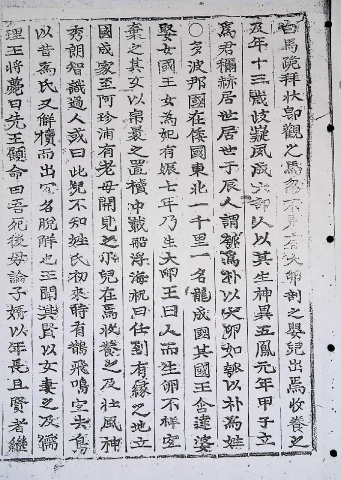 白馬跪拜狀卽觀之馬忽不見有大卵剖之嬰兒出焉收養之
及年十三歲岐嶷夙成六部人以其生神異五鳳元年甲子立
爲君稱赫居世居世于辰人謂瓠爲朴以大卵如瓠以朴爲姓
○多波那國在倭國東北一千里一名龍成國其國王含達婆
娶女國王女爲妃有娠七年乃生大卵王曰人而生卵不祥宜
棄之其女以帛裹之置櫝中載船浮海祝曰任到有緣之地立
國成家至阿珍浦有老母開見之小兒在焉收養之及壯風神
秀朗智識過人或曰此兒不知姓氏初來時有鵲飛鳴宜去鳥
以昔爲氏又解櫝而出宜名脫解也王聞其賢以女妻之及儒
理王將薨曰先王顧命曰吾死後毋論子婿以年長且賢者繼